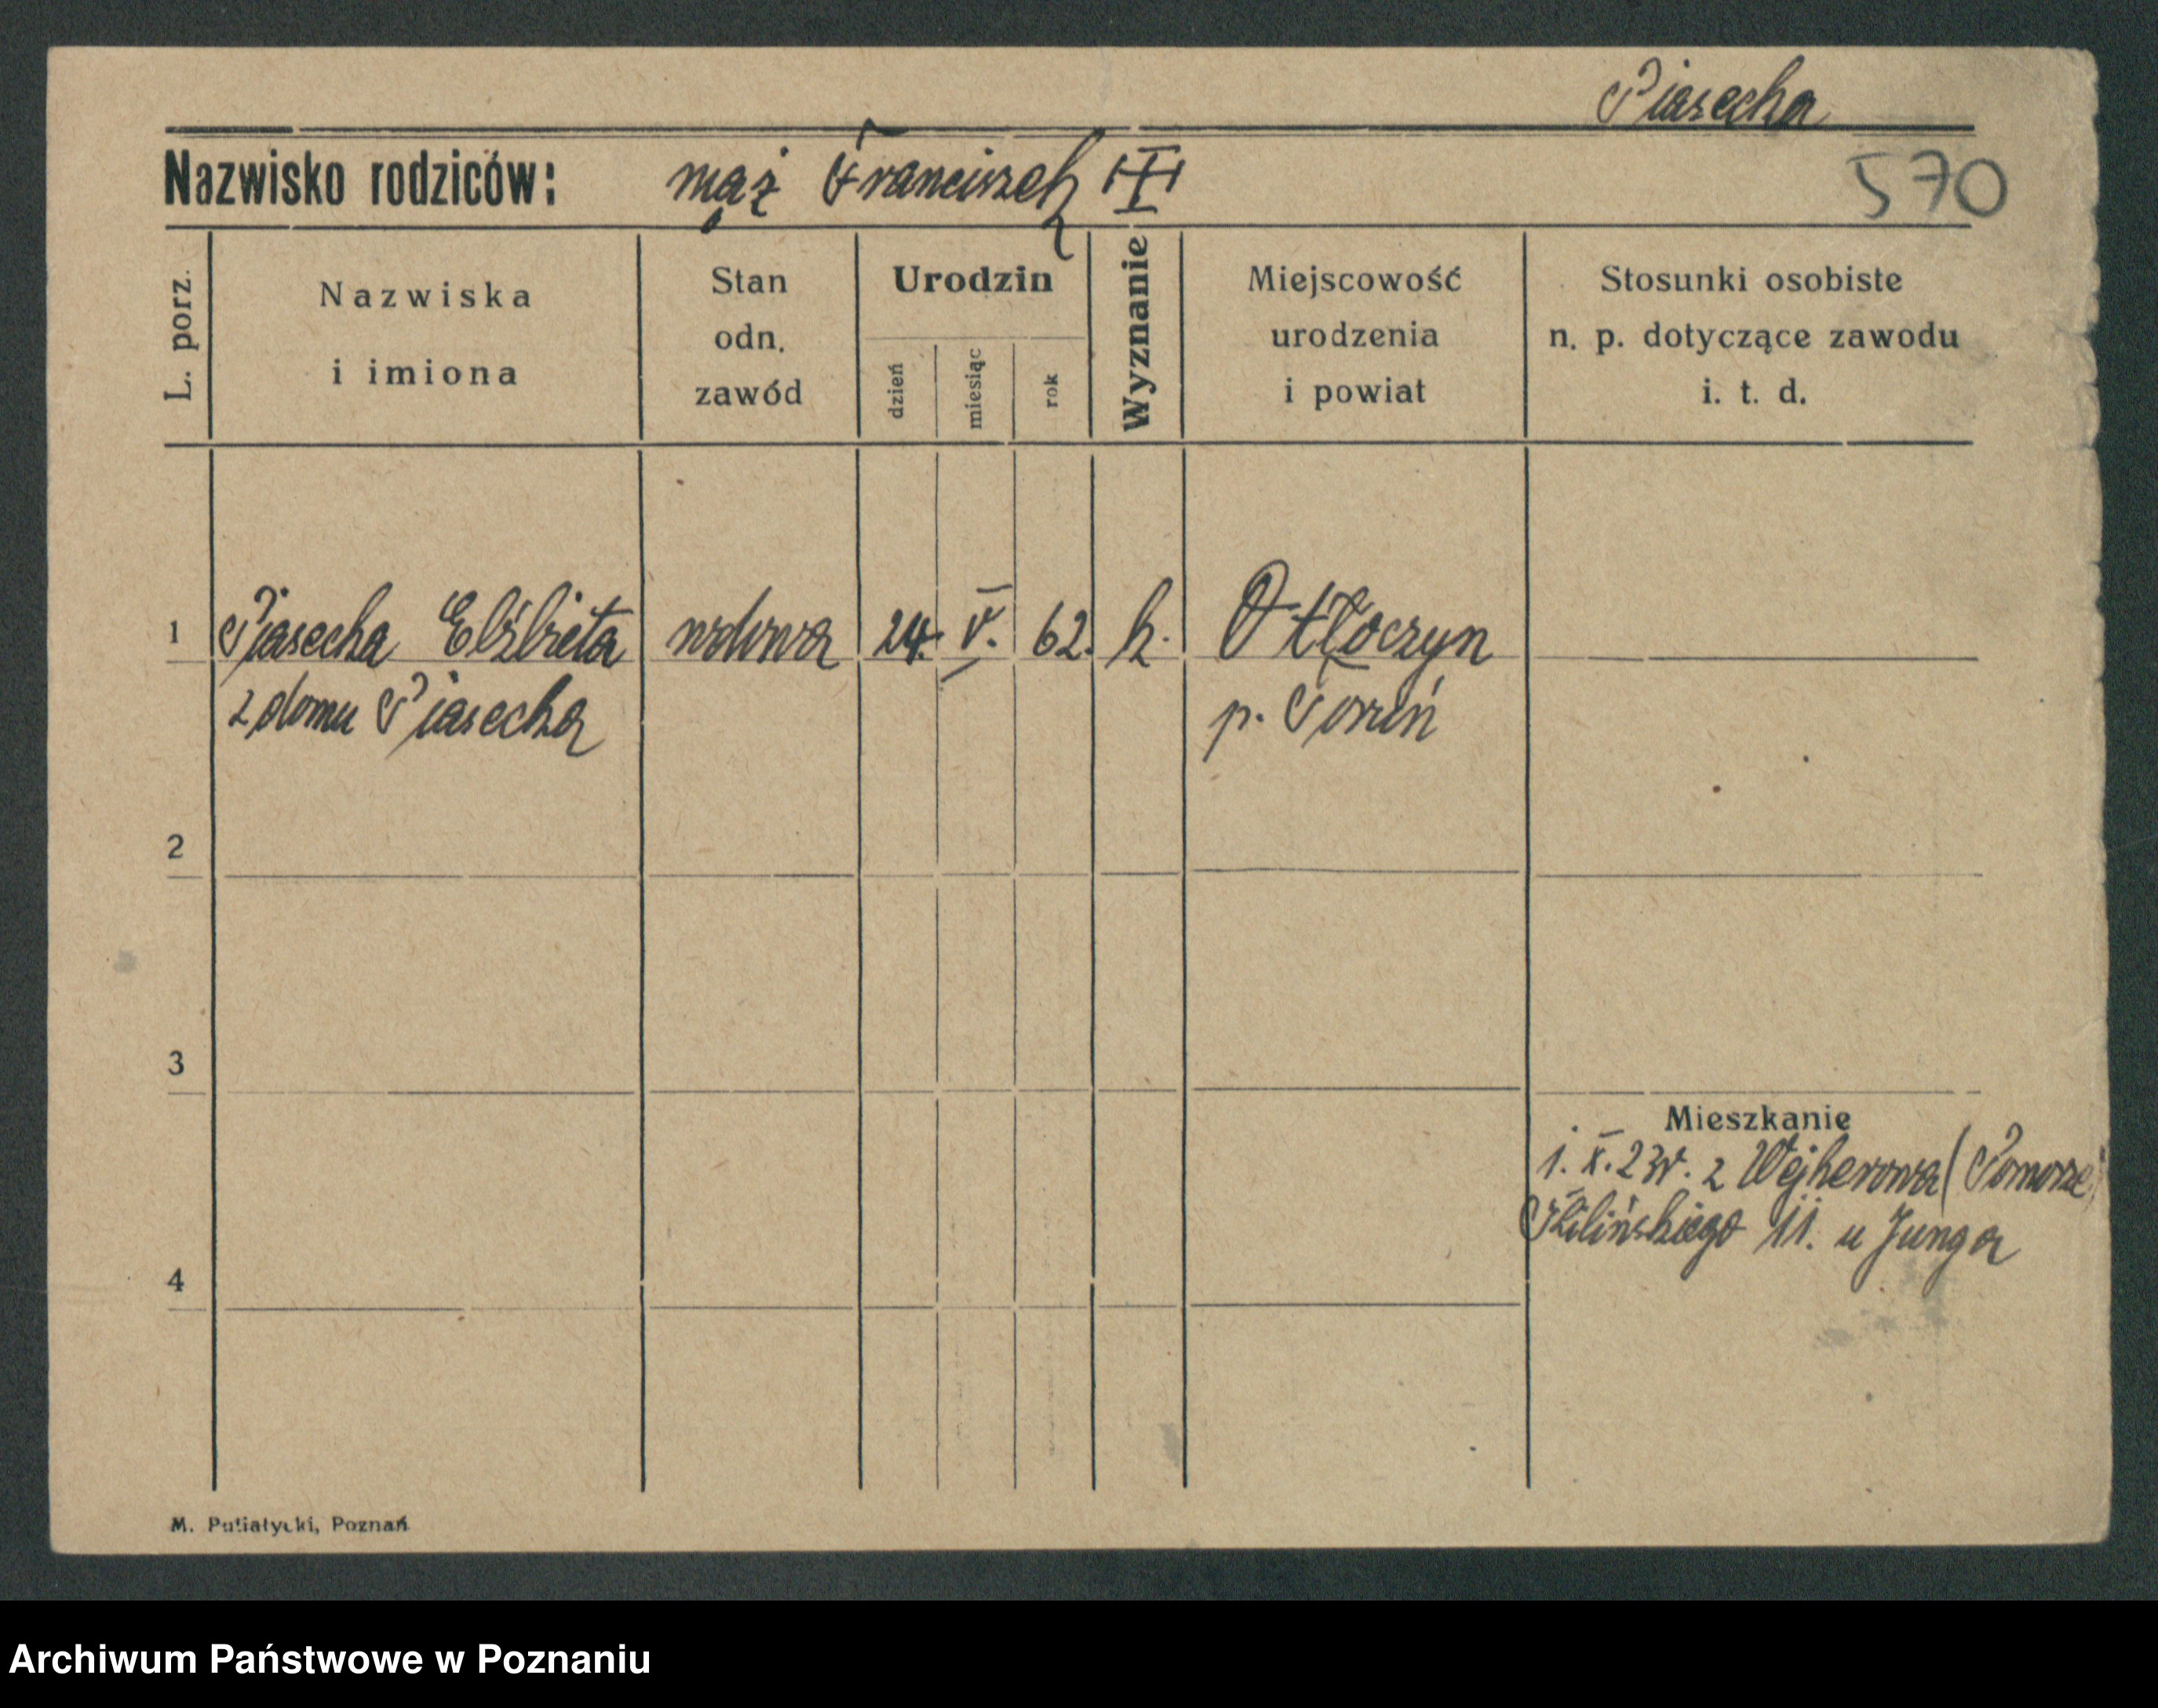 Piasecka
Nazwisko rodziców: mąż Franciszek
570
L. porz.
Nazwiska
i imiona
Stan
odn.
zawód
Urodzin
dzień
miesiąc
rok
Wyznanie
Miejscowość
urodzenia
i powiat
Stosunki osobiste
n. p. dotyczące zawodu
i. t. d.
1 Piasecka Elżbieta wdowa 24. V. 62. k. Otłoczyn
z domu Piasecka p. Toruń
2
3
Mieszkanie
1. X. 23r. z Wejherowa (Pomorze)
Kilińskiego 11. u Junga
4
M. Putiatycki, Poznań
Archiwum Państwowe w Poznaniu